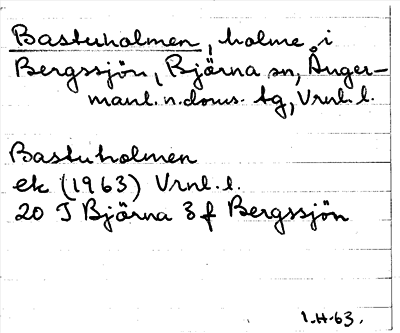 Bastuholmen, holme i
Bergssjön, Björna sn, Ånger-
manl. n. doms. tg, Vrnl. l.
Bastuholmen
ek (1963) Vrnl. l.
20 J Björna 3 f Bergssjön
1.H.63.